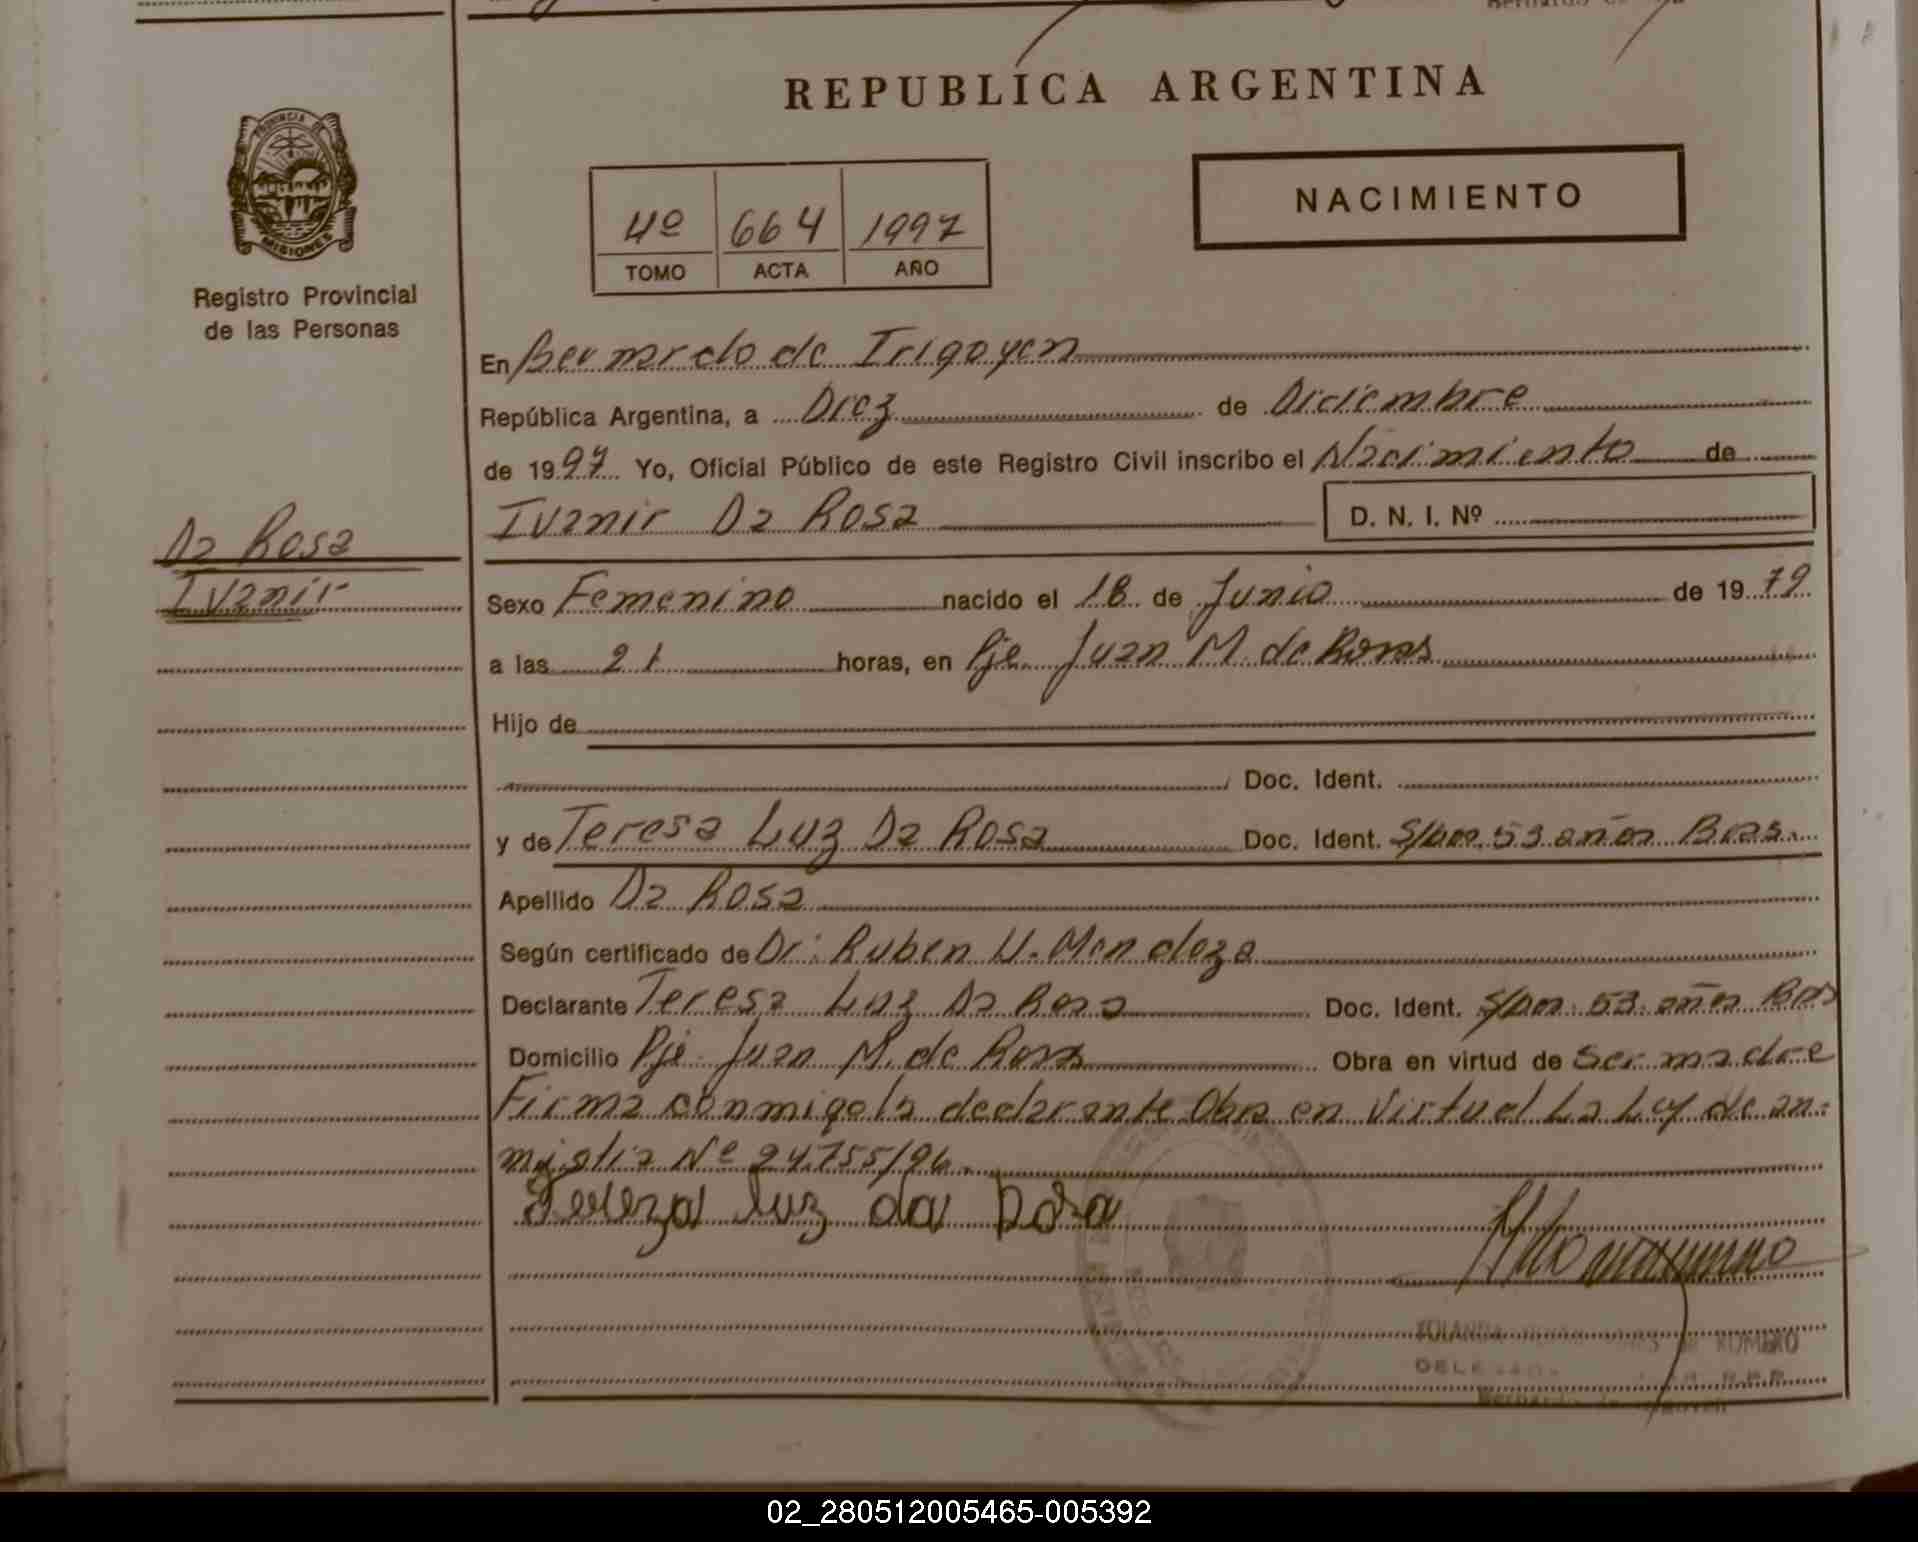 REPUBLICA ARGENTINA
PROVINCIA DE
MISIONES
Registro Provincial
de las Personas
NACIMIENTO
4º 664 1997
TOMO ACTA AÑO
En Bernardo de Irigoyen
República Argentina, a Diez de Diciembre
de 1997 Yo, Oficial Público de este Registro Civil inscribo el Nacimiento de
Ivanir Da Rosa D. N. I. Nº
Da Rosa
Ivanir
Sexo Femenino nacido el 18 de Junio de 1979
a las 21 horas, en Pje Juan M. de Rosas
Hijo de
Doc. Ident.
y de Teresa Luz Da Rosa Doc. Ident. S/Doc. 53 años Bras.
Apellido Da Rosa
Según certificado de Dr: Ruben U. Mendoza
Declarante Teresa Luz Da Rosa Doc. Ident. S/Doc. 53 años Bras
Domicilio Pje. Juan M. de Rosas Obra en virtud de Ser madre
Firma conmigo la declarante Obra en Virtud La Ley de an-
mistia Nº 24.755/96.
Tereza luz da Rosa
ROMERO
02_280512005465-005392